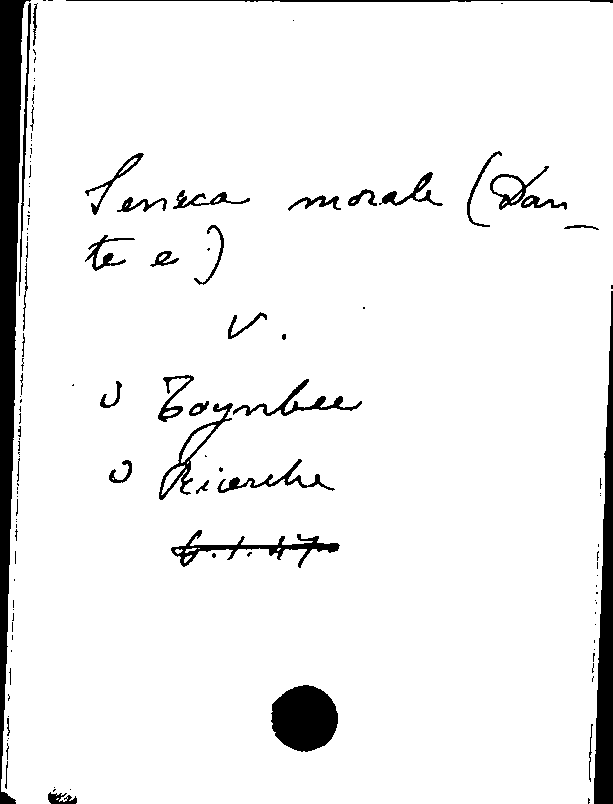 Seneca morale (Dan_
te e)
V.
Toynbee
Ricerche
6.1.47